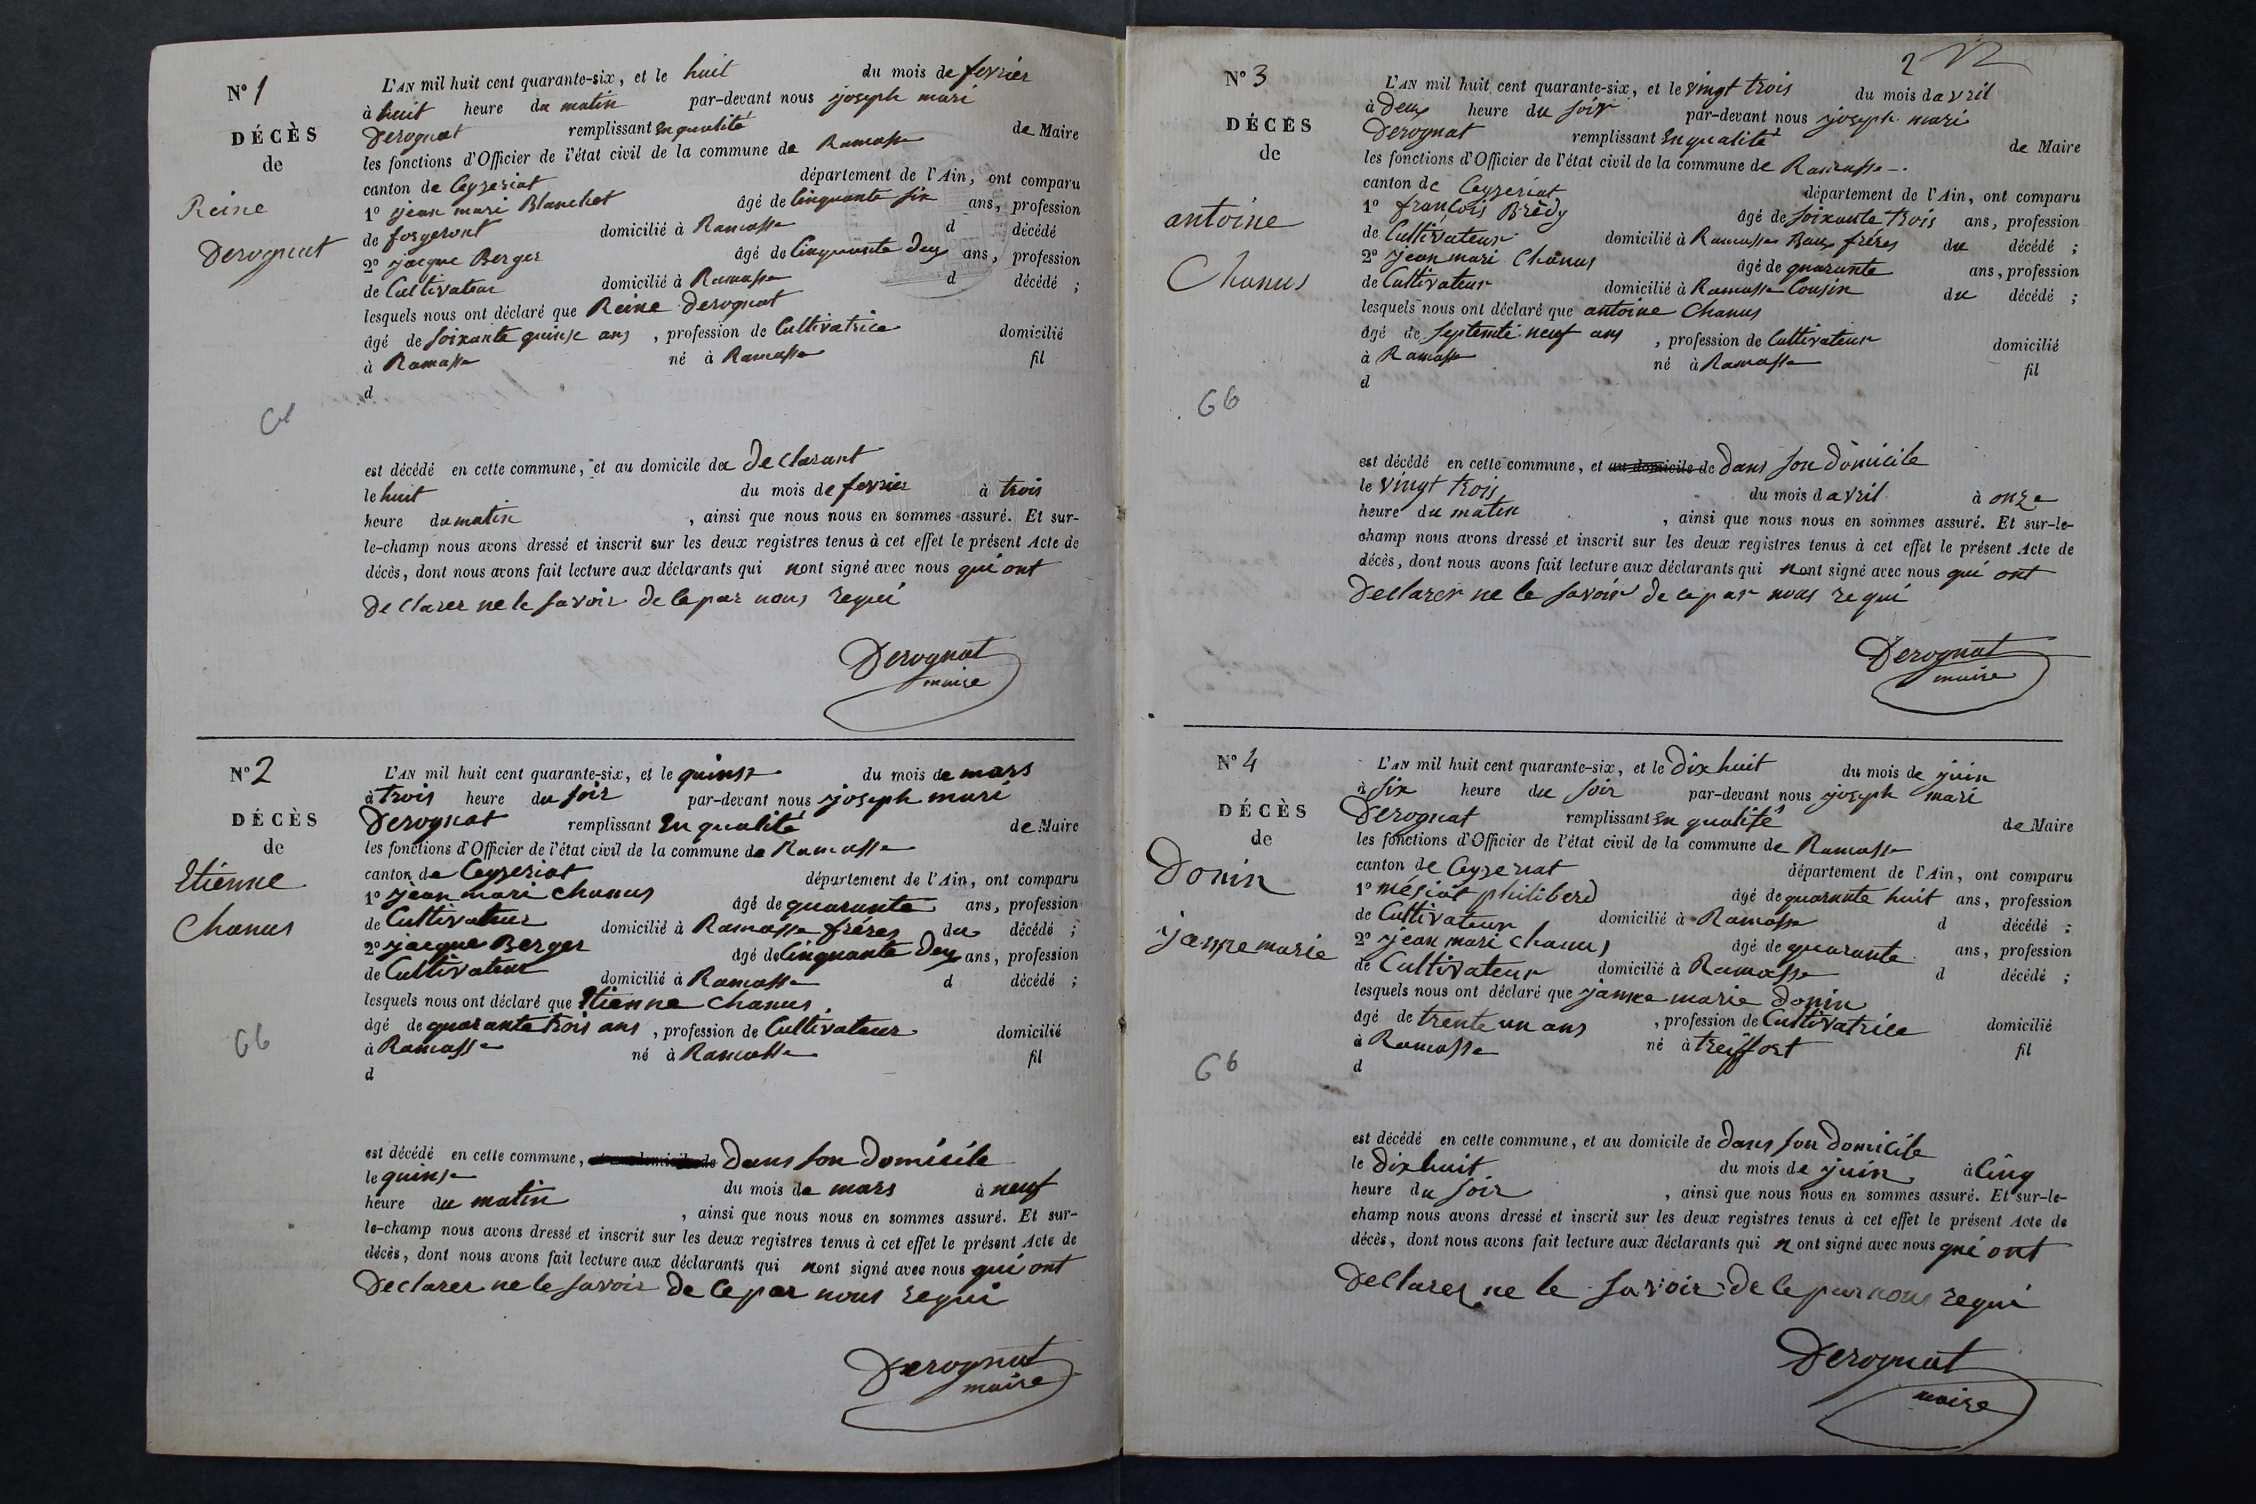 N° 1
DÉCÈS
de
Reine
Derognat
L'AN mil huit cent quarante-six, et le huit du mois de fevrier
à huit heure du matin par-devant nous joseph mari
Derognat remplissant en qualité de Maire
les fonctions d'Officier de l'état civil de la commune de Ramasse
canton de Ceyzeriat département de l'Ain, ont comparu
1° jean mari Blanchet âgé de Cinquante six ans, profession
de forgeront domicilié à Ramasse d décédé
2° jacque Berger âgé de Cinquante deux ans, profession
de Cultivateur domicilié à Ramasse d décédé ;
lesquels nous ont déclaré que Reine Derognat
âgé de soixante quinse ans , profession de Cultivatrice domicilié
à Ramasse né à Ramasse fil
d
est décédé en cette commune, et au domicile du declarant
le huit du mois de fevrier à trois
heure du matin , ainsi que nous nous en sommes assuré. Et sur-
le-champ nous avons dressé et inscrit sur les deux registres tenus à cet effet le présent Acte de
décès, dont nous avons fait lecture aux déclarants qui nont signé avec nous qui ont
declarer ne le savoir de ce par nous requi
Derognat
maire
N° 2
DÉCÈS
de
Etienne
Chanus
66
L'AN mil huit cent quarante-six, et le quinse du mois de mars
à trois heure du soir par-devant nous joseph mari
Derognat remplissant en qualité de Maire
les fonctions d'Officier de l'état civil de la commune de Ramasse
canton de Ceyzeriat département de l'Ain, ont comparu
1° jean mari chanus âgé de quarante ans, profession
de Cultivateur domicilié à Ramasse fréres du décédé ;
2° jacque Berger âgé de Cinquante deux ans, profession
de Cultivateur domicilié à Ramasse d décédé ;
lesquels nous ont déclaré que Etienne chanus
âgé de quarante trois ans , profession de Cultivateur domicilié
à Ramasse né à Ramasse fil
d
est décédé en cette commune, dans son domicile
le quinse du mois de mars à neuf
heure du matin , ainsi que nous nous en sommes assuré. Et sur-
le-champ nous avons dressé et inscrit sur les deux registres tenus à cet effet le présent Acte de
décès, dont nous avons fait lecture aux déclarants qui nont signé avec nous qui ont
declarer ne le savoir de ce par nous requi
Derognat
maire
2
N° 3
DÉCÈS
de
antoine
Chanus
66
L'AN mil huit cent quarante-six, et le vingt trois du mois d avril
à deux heure du soir par-devant nous joseph mari
Derognat remplissant en qualité de Maire
les fonctions d'Officier de l'état civil de la commune de Ramasse
canton de Ceyzeriat département de l'Ain, ont comparu
1° francois Brédy âgé de soixante trois ans, profession
de Cultivateur domicilié à Ramasse Baux fréres du décédé ;
2° jean mari Chanus âgé de quarante ans, profession
de Cultivateur domicilié à Ramasse Cousin du décédé ;
lesquels nous ont déclaré que antoine Chanus
âgé de septente neuf ans , profession de Cultivateur domicilié
à Ramasse né à Ramasse fil
d
est décédé en cette commune, et au domicile de dans son domicile
le vingt trois du mois d avril à onze
heure du matin , ainsi que nous nous en sommes assuré. Et sur-le-
champ nous avons dressé et inscrit sur les deux registres tenus à cet effet le présent Acte de
décès, dont nous avons fait lecture aux déclarants qui nont signé avec nous qui ont
declarer ne le savoir de ce par nous requi
Derognat
maire
N° 4
DÉCÈS
de
Donin
janne marie
66
L'AN mil huit cent quarante-six, et le dix huit du mois de juin
à six heure du soir par-devant nous joseph mari
Derognat remplissant en qualité de Maire
les fonctions d'Officier de l'état civil de la commune de Ramasse
canton de Ceyzeriat département de l'Ain, ont comparu
1° méziat philiberd âgé de quarante huit ans, profession
de Cultivateur domicilié à Ramasse d décédé ;
2° jean mari chanus âgé de quarante ans, profession
de Cultivateur domicilié à Ramasse d décédé ;
lesquels nous ont déclaré que janne marie donin
âgé de trente un ans , profession de Cultivatrice domicilié
à Ramasse né à treffort fil
d
est décédé en cette commune, et au domicile de dans son domicile
le dix huit du mois de juin à Cinq
heure du soir , ainsi que nous nous en sommes assuré. Et sur-le-
champ nous avons dressé et inscrit sur les deux registres tenus à cet effet le présent Acte de
décès, dont nous avons fait lecture aux déclarants qui nont signé avec nous qui ont
declarer ne le savoir de ce par nous requi
Derognat
maire